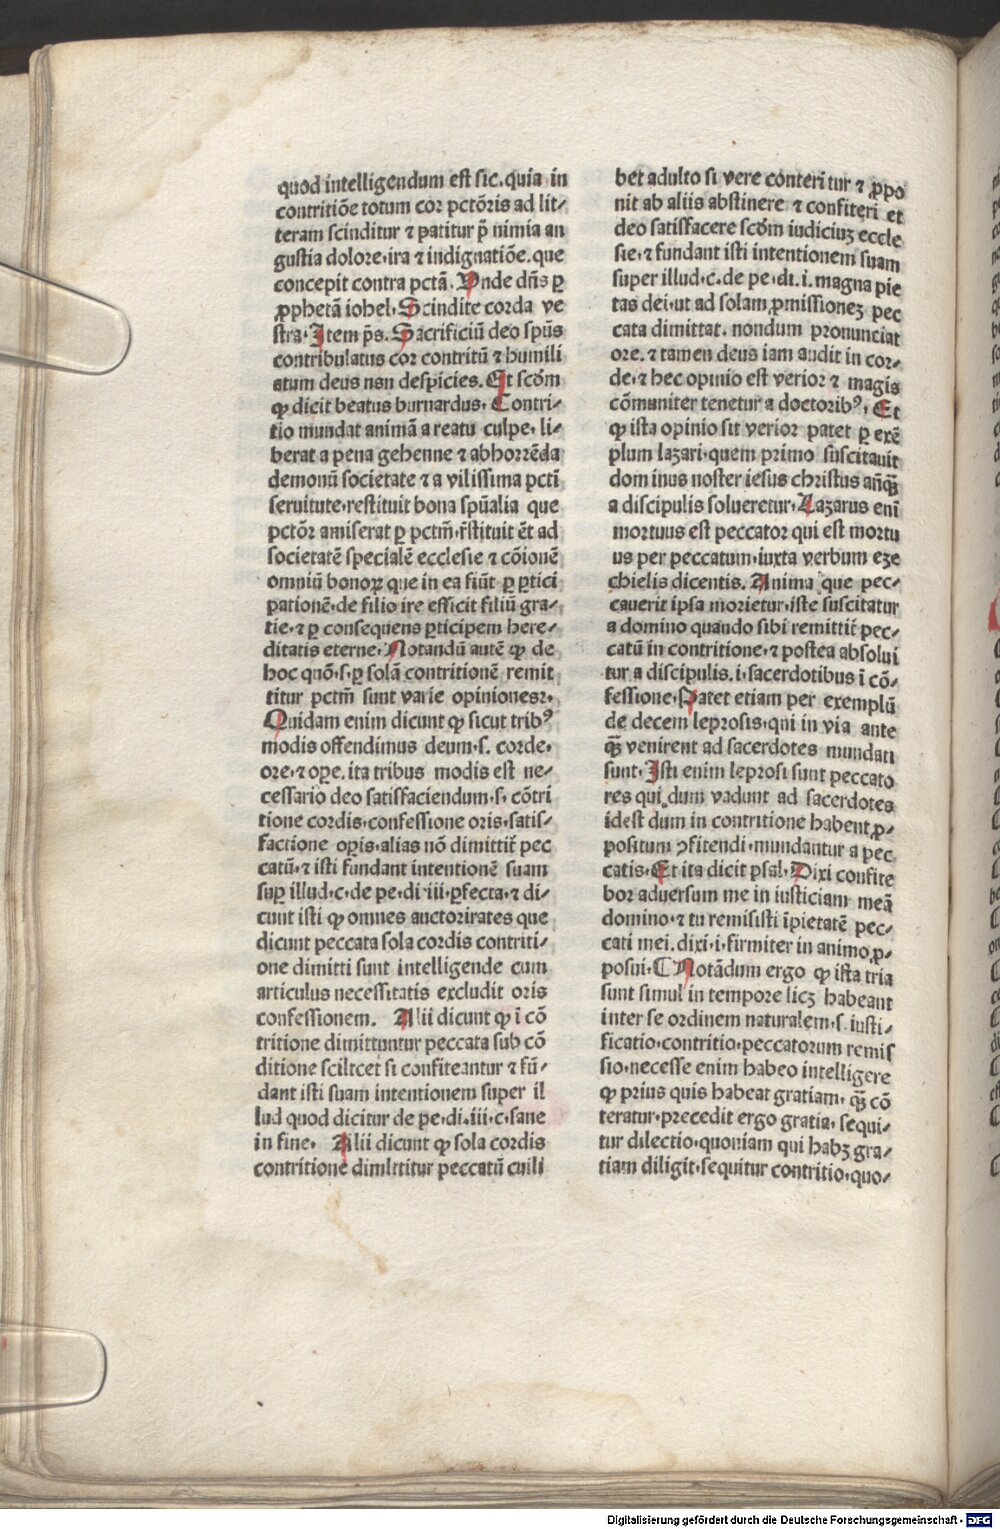 quod intelligendum est sic.quia in
contritiõe totum cor pctõris ad lit⸗
teram scinditur ⁊ patitur p̃ nimia an
gustia dolore.ira ⁊ indignatiõe.que
concepit contra pctã. Vnde dñs ꝑ
ꝓphetã iohel. Scindite corda ve
stra. Item p̃s. Sacrificiũ deo spũs
contribulatus cor contritũ ⁊ humili
atum deus non despicies. Et scõm
ꝙ dicit beatus burnardus. Contri⸗
tio mundat animã a reatu culpe. li⸗
berat a pena gehenne ⁊ abhorrẽda
demonũ societate ⁊ a vilissima pcti
seruitute.restituit bona spũalia que
pctõr amiserat ꝑ pctm̃.r̃stituit ẽt ad
societatẽ specialẽ ecclesie ⁊ cõionẽ
omniũ bonoꝝ que in ea fiũt ꝑ ꝑtici
pationẽ.de filio ire efficit filiũ gra⸗
tie.⁊ ꝑ consequens ꝑticipem here⸗
ditatis eterne. Notandũ autẽ ꝙ de
hoc quõ.s.ꝑ solã contritionẽ remit
titur pctm̃ sunt varie opiniones.
Quidam enim dicunt ꝙ sicut tribꝰ
modis offendimus deum.s. corde.
ore.⁊ oꝑe.ita tribus modis est ne⸗
cessario deo satisfaciendum.s. cõtri
tione cordis.confessione oris.satis⸗
factione oꝑis.alias nõ dimittit̃ pec
catũ.⁊ isti fundant intentionẽ suam
suꝑ illud.c.de pe.di.iii.ꝑfecta.⁊ di⸗
cunt isti ꝙ omnes auctorirates que
dicunt peccata sola cordis contriti⸗
one dimitti sunt intelligende cum
articulus necessitatis excludit oris
confessionem. Alii dicunt ꝙ ĩ cõ
tritione dimittuntur peccata sub cõ
ditione scilicet si confiteantur ⁊ fũ⸗
dant isti suam intentionem super il
lud quod dicitur de pe.di.iii.c.sane
in fine. Alii dicunt ꝙ sola cordis
contritione dimittitur peccatũ cuili
bet adulto si vere conterit̃ur ⁊ ꝓpo
nit ab aliis abstinere ⁊ confiteri et
deo satisfacere scõm iudiciuꝫ eccle
sie.⁊ fundant isti intentionem suam
super illud.c.de pe.di.i.magna pie
tas dei.ut ad solam ꝓmissioneꝫ pec
cata dimittat.nondum pronunciat
ore.⁊ tamen deus iam audit in cor⸗
de.⁊ hec opinio est verior ⁊ magis
cõmuniter tenetur a doctoribꝰ. Et
ꝙ ista opinio sit verior patet ꝑ exẽ
plum lazari.quem primo suscitauit
dominus noster iesus christus añꝗ̃
a discipulis solueretur. Lazarus eni
mortuus est peccator qui est mortu
us per peccatum.iuxta verbum eze
chielis dicentis. Anima que pec⸗
cauerit ipsa morietur.iste suscitatur
a domino quando sibi remittit̃ pec⸗
catũ in contritione.⁊ postea absolui
tur a discipulis.i.sacerdotibus ĩ cõ⸗
fessione. Patet etiam per exemplũ
de decem leprosis.qui in via ante
ꝗ̃ venirent ad sacerdotes mundati
sunt. Isti enim leprosi sunt peccato
res qui dum vadunt ad sacerdotes
idest dum in contritione habent ꝓ⸗
positum ↄfitendi.mundantur a pec
catis. Et ita dicit psal. Dixi confite
bor aduersum me in iusticiam meã
domino.⁊ tu remisisti ĩpietatẽ pec⸗
cati mei.dixi.i.firmiter in animo ꝓ⸗
posui. ¶ Notãdum ergo ꝙ ista tria
sunt simul in tempore licꝫ habeant
inter se ordinem naturalem.s. iusti⸗
ficatio.contritio.peccatorum remis
sio.necesse enim habeo intelligere
ꝙ prius quis habeat gratiam. ꝗ̃ cõ
teratur.precedit ergo gratia. sequi⸗
tur dilectio.quoniam qui habꝫ gra⸗
tiam diligit.sequitur contritio.quo⸗
Digitalisierung gefördert durch die Deutsche Forschungsgemeinschaft - DFG